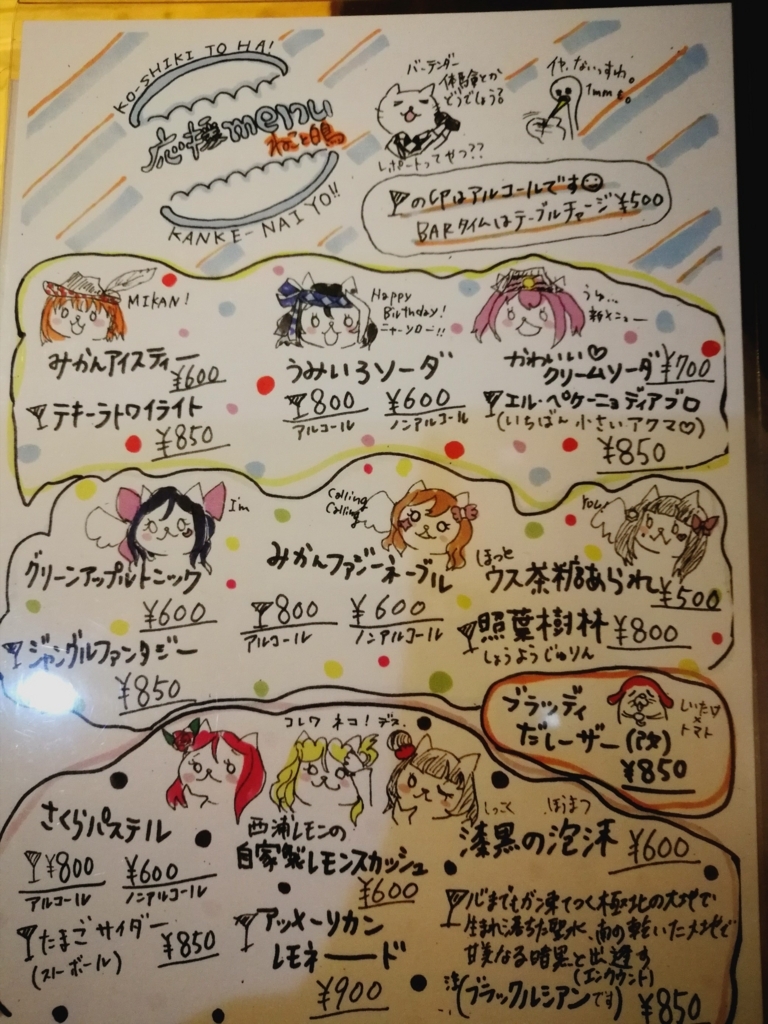 KO-SHIKI TO HA!
応援menu
ねこと鴎
KANKE-NAI YO!!
バーテンダー
体験とか
どうでしょう?
レポートってやつ??
イヤ、ないっすわ。
1mmも。
のCPはアルコールです
BARタイムはテーブルチャージ¥500
MIKAN!
みかんアイスティー
¥600
テキーラトワイライト
¥850
Happy
Birthday!
ニャーソロー!!
うみいろソーダ
¥800 ¥600
アルコール ノンアルコール
新メニュー
かわいい♡
クリームソーダ ¥700
エル・ペケーニョ ディアブロ
(いちばん小さいアクマ♡)
¥850
I'm
グリーンアップルトニック
¥600
ジャングルファンタジー
¥850
Calling
Calling
みかんファジーネーブル
¥800 ¥600
アルコール ノンアルコール
You!
ほっと
ウス茶糖あられ
¥500
照葉樹林 ¥800
しょうようじゅりん
ブラッディ
だレーザー
¥850
トマト
コレワ ネコ!デス.
さくらパステル
¥800 ¥600
アルコール ノンアルコール
たまごサイダー
¥850
西浦レモンの
自家製レモンスカッシュ
¥600
アッメーリカン
レモネード
¥900
しっこく ほうまつ
漆黒の泡沫 ¥600
心までもが凍てつく極北の大地で
生まれ落ちた聖水、南の乾いた大地で
甘美なる暗黒と出逢す
(エンカウント)
注(ブラックルシアンです)
¥850